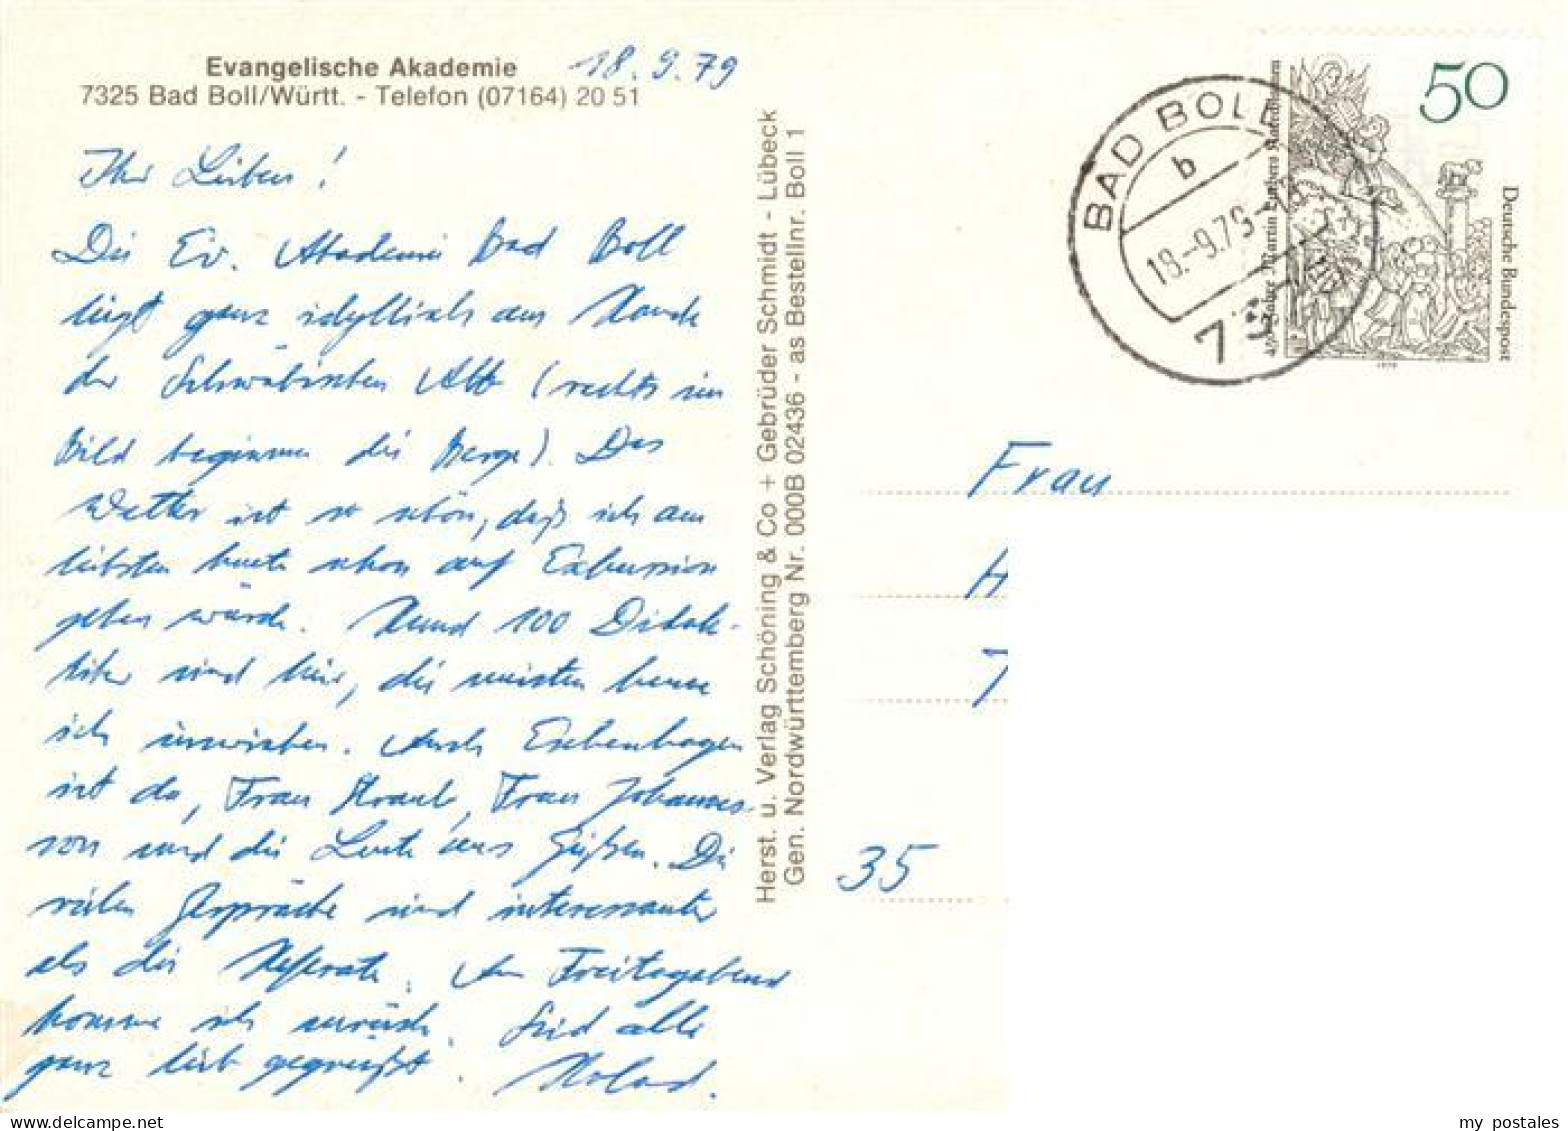 Evangelische Akademie
7325 Bad Boll/Württ. - Telefon (07164) 20 51
18.9.79
Ihr Lieben!
Die Ev. Akademie Bad Boll
liegt ganz idyllisch am Rande
der Schwäbischen Alb (rechts im
Bild beginnen die Berge). Das
Wetter ist so schön, daß ich am
liebsten heute schon auf Exkursion
gehen würde. Rund 100 Didak-
tiker sind hier, die meisten kenne
ich inzwischen. Auch Eschenhagen
ist da, Frau Straub, Frau Johannes-
son und die Leute aus Gießen. Die
vielen Gespräche sind interessanter
als die Referate. Am Freitagabend
komme ich zurück. Seid alle
ganz lieb gegrüßt.
Herst. u. Verlag Schöning & Co + Gebrüder Schmidt - Lübeck
Gen. Nordwürttemberg Nr. 000B 02436 - as Bestellnr. Boll 1
BAD BOLL
b
18.-9.79-18
73
50
Jahre Martin Luthers Katechismen
Deutsche Bundespost
1979
Frau
H
7
35
my postales